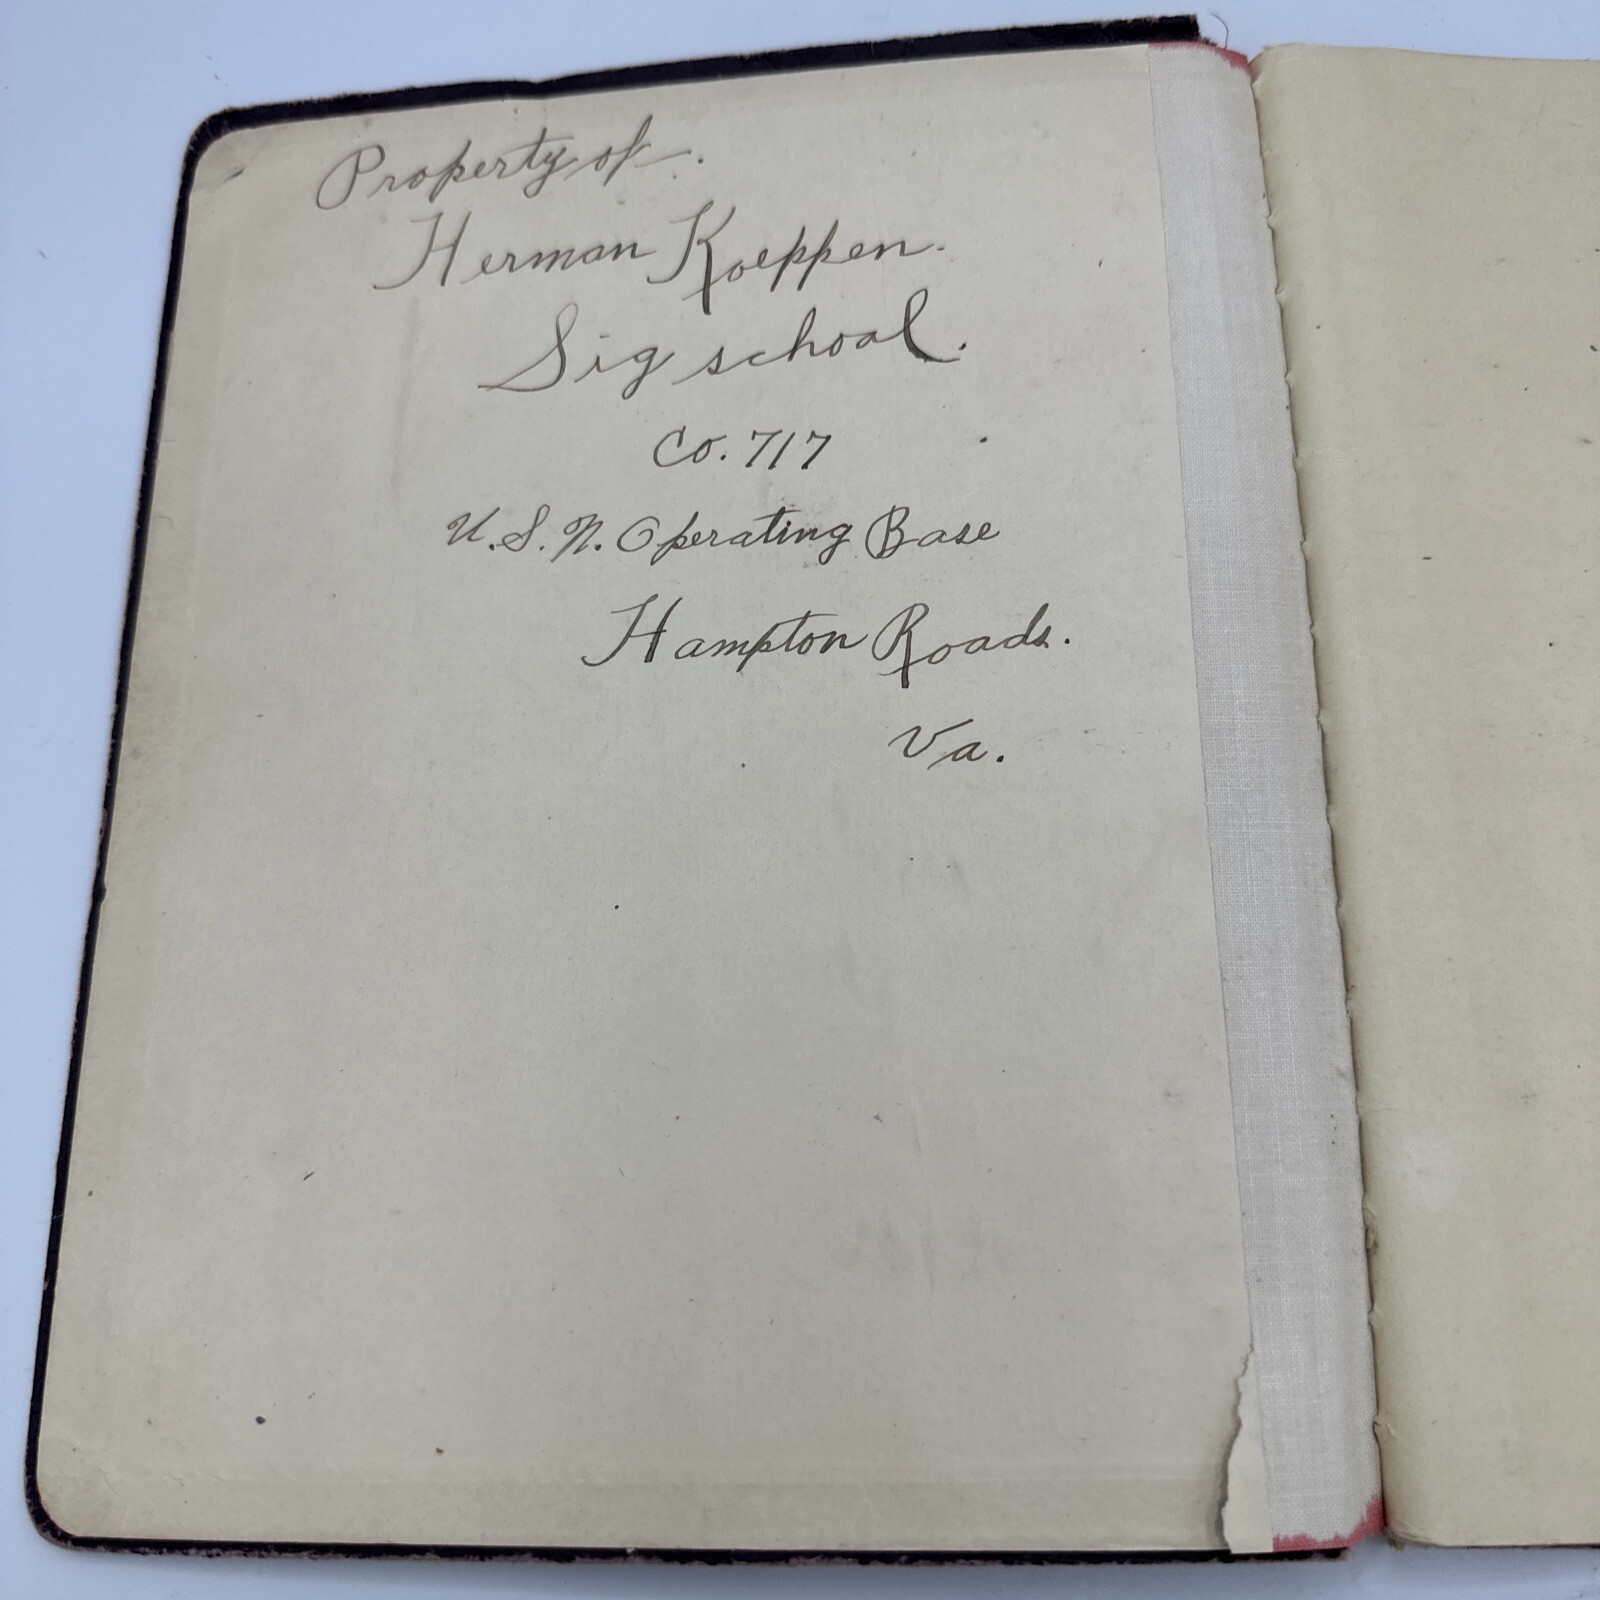 Property of.
Herman Koeppen.
Sig school.
Co. 717
U.S.N. Operating Base
Hampton Roads.
Va.